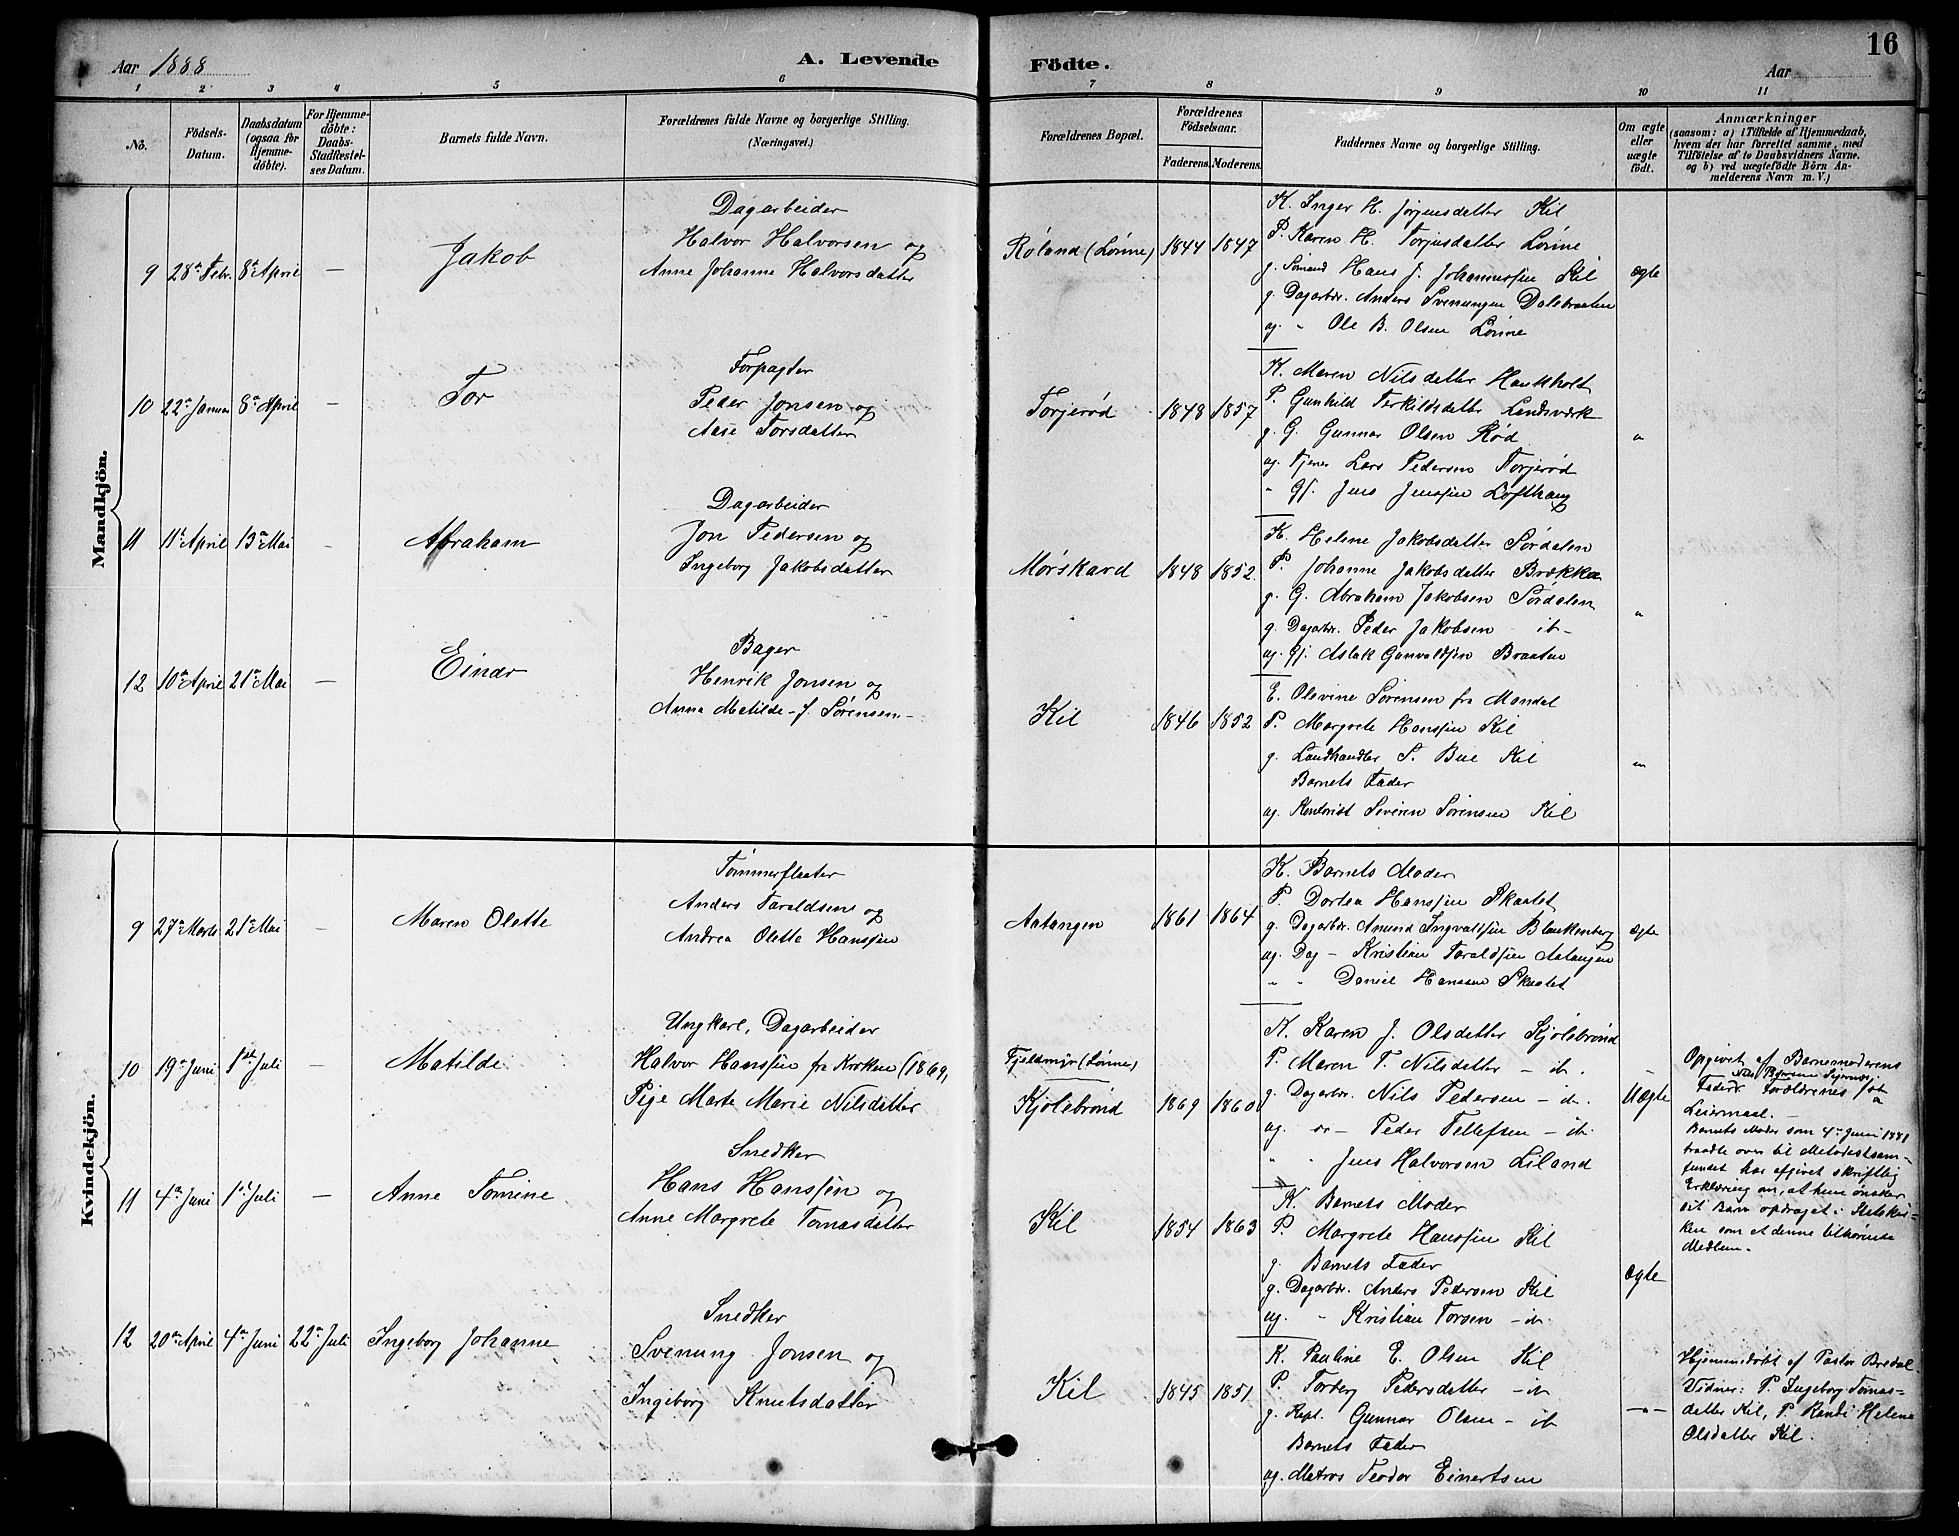 16
Aar 1888
A. Levende
Födte.
Aar
1 2 3 4 5 6 7 8 9 10 11
No.
Födsels-
Datum.
Daabsdatum
(ogsaa for
Hjemme-
döbte).
For Hjemme-
döbte:
Daabs-
Stadfæstel-
ses Datum.
Barnets fulde Navn.
Forældrenes fulde Navne og borgerlige Stilling.
(Næringsvei.)
Forældrenes Bopæl.
Forældrenes
Födselsaar.
Faderens. Moderens.
Faddernes Navne og borgerlige Stilling.
Om ægte
eller
uægte
födt.
Anmærkninger
(saasom: a) i Tilfælde af Hjemmedaab,
hvem der har forrettet samme, med
Tilföielse af to Daabsvidners Navne.
og b) ved uægtefödte Börn An-
melderens Navn m.V.)
Mandkjön.
9 28de Febr. 8de April — Jakob
Dagarbeider
Halvor Halvorsen og
Anne Johanne Halvorsdatter
Røland (Lønne) 1844 1847
K. Inger H. Jørgensdatter Kil
P. Karen H. Torjusdatter Lønne
g. Sømand Hans J. Johannessen Kil
g. Dagarbr. Anders Svenungsen Dalsbraaten
og. " Ole B. Olsen Lønne
ægte
10 22de Januar 8de April — Tor
Forpagter
Peder Jonsen og
Aase Torsdatter
Torjerød 1848 1857
K. Maren Nilsdatter Haukholt
P. Gunhild Terkildsdatter Landsværk
g. G. Gunnar Olsen Rød
og. Tjener Lars Pedersen Torjerød
" Gf. Jens Jenssen Lofthaug
"
11 11te April 13de Mai - Abraham
Dagarbeider
Jon Pedersen og
Ingeborg Jakobsdatter
Mørskard 1848 1852
K. Helene Jakobsdatter Sørdalen
P. Johanne Jakobsdatter Brække
g. G. Abraham Jakobsen Sørdalen
g. Dagarbr. Peder Jakobsen - it-
og. Gf. Aslak Gunvaldsen Braaten
"
12 10de April 21de Mai — Einar
Bager
Henrik Jonsen og
Anna Matilde - J. Sørensen -
Kil 1846 1852
E. Olevine Sørensen fra Mandal
P. Margrete Hanssen Kil
g. Landhandler S. Bue Kil
Barnets Fader
og. Kontorist Severin Sørensen Kil
"
Kvindekjön.
9 27de Marts 21de Mai — Maren Olette
Tømmerfløter
Anders Taraldsen og
Andrea Olette Hanssen
Aatangen 1861 1864
K. Barnets Moder
P. Dortea Hanssen Skaatet
g. Dagarbr. Amund Ingvaldsen Blankenberg
og. Dag - Kristian Taraldsen Aatangen
" " Daniel Hanssen Skaatet
ægte
10 19de Juni 1ste Juli — Matilde
Ungkarl, Dagarbeider
Halvor Hanssen fra Kroken (1869,
Pige Marte Marie Nilsdatter
Fjeldmyr (Lønne)
Kjølebrønd 1869 1860
K. Karen J. Olsdatter Kjølebrønd
P. Maren T. Nilsdatter - it.
g. Dagarbr. Nils Pedersen - it.
og. " - Peder Tellefsen - it.
" " Jens Halvorsen Liland
Uægte
Opgivet af Barnemoderens
Fader
Forældrenes 1ste
Leiermaal. -
Barnets Moder som 4de Juni 1881
traadte over til Metodistsam-
fundet har afgivet skriftlig
Erklæring om, at hun ønsker
sit Barn opdraget i Statskir-
ken som et denne tilhørende
Medlem.
11 4de Juni 1ste Juli — Anne Tomine
Snedker
Hans Hanssen og
Anne Margrete Tomasdatter
Kil 1854 1863
K. Barnets Moder
P. Margrete Hanssen Kil
g. Barnets Fader
g. Dagarbr. Anders Pedersen Kil
og. " Kristian Torsen - it.
ægte
12 20de April 4de Juni 22de Juli Ingeborg Johanne
Snedker
Svenung Jonsen og
Ingeborg Knutsdatter
Kil 1845 1851
K. Pauline E. Olsen Kil
P. Torberg Pedersdatter - it
g. Kapt. Gunnar Olsen - it
Barnets Fader
og. Matros Teodor Einertsen
—"—
Hjemmedøbt af Pastor Bredal
Vidner: P. Ingeborg Tomas-
datter Kil, P. Randi Helene
Olsdatter Kil.